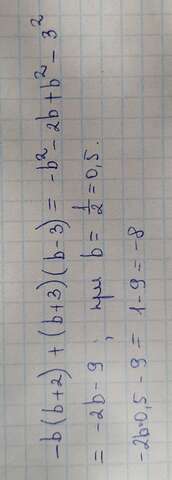 -b(b+2) + (b+3)(b-3) = -b² - 2b + b² - 3²
= -2b - 9 ; при b = 1/2 = 0,5.
-2·0,5 - 9 = 1 - 9 = -8